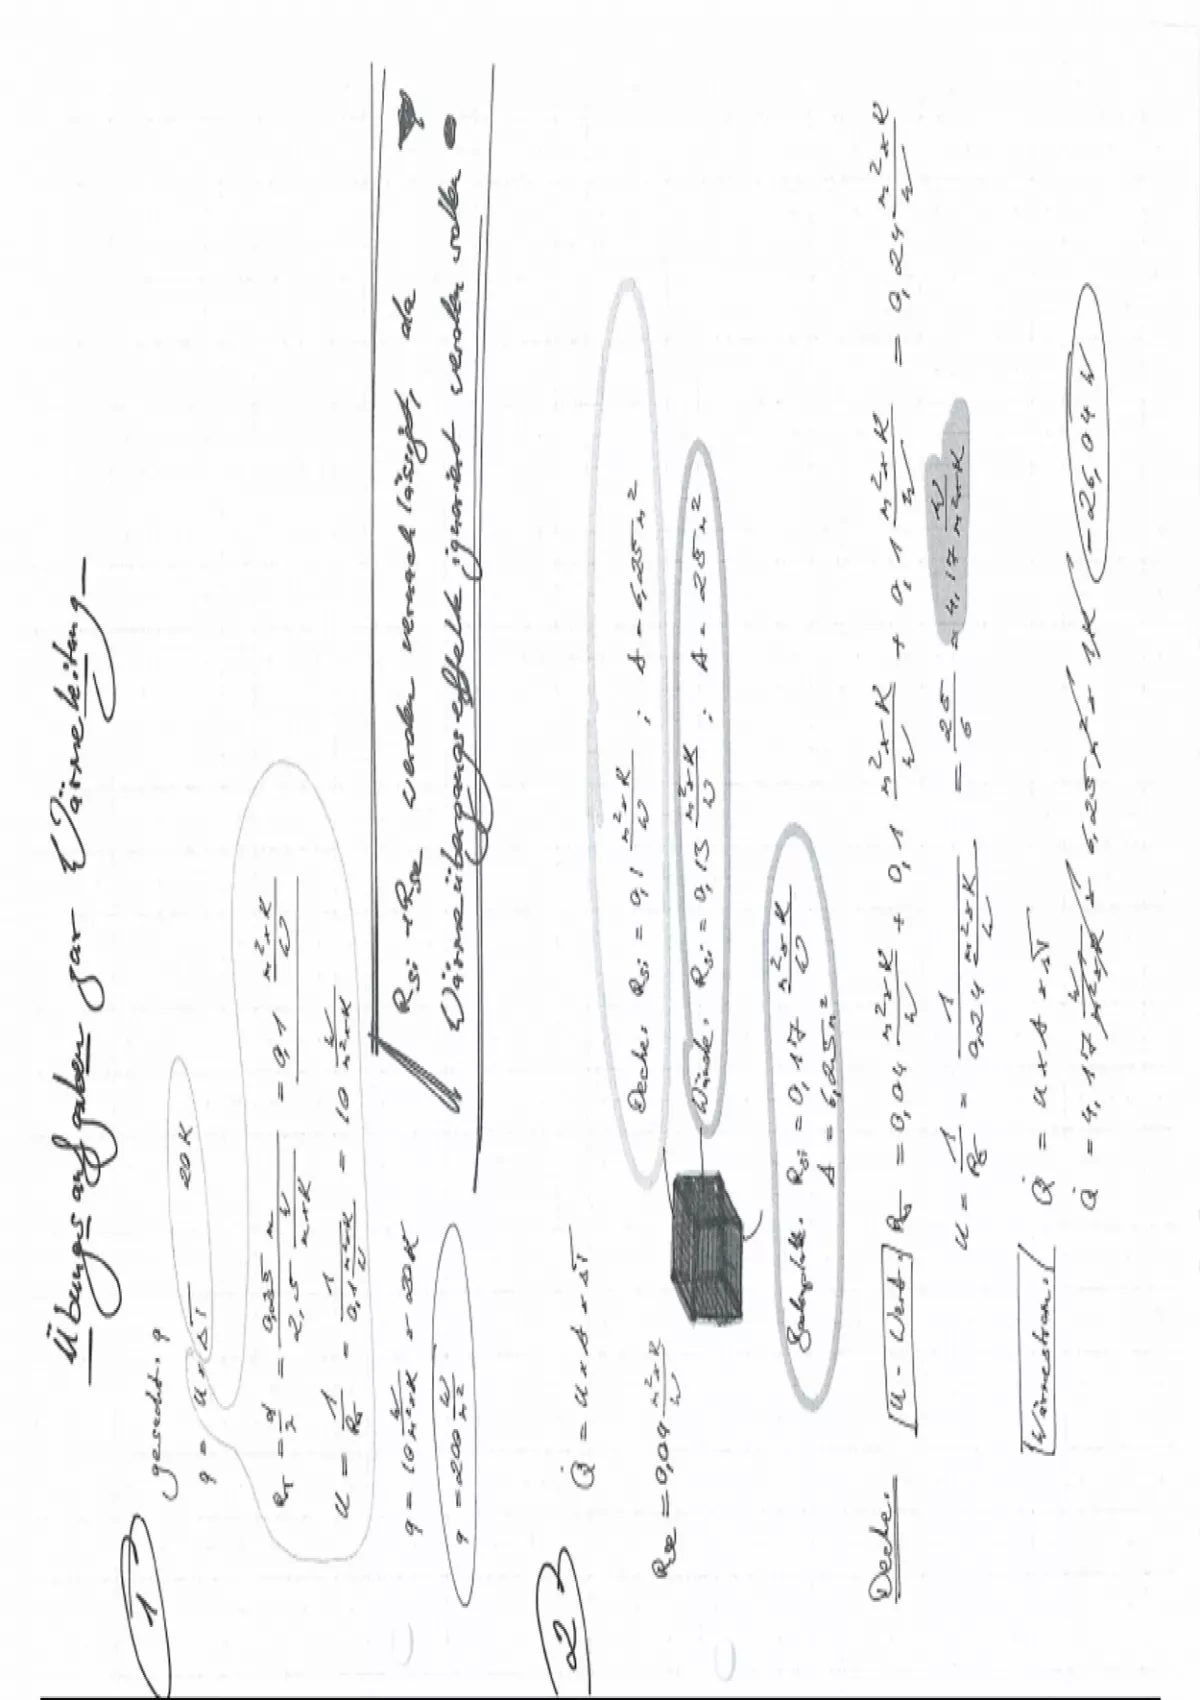 Übungsaufgaben zur Wärmeleitung
1)
gesucht: q
q = U × ΔT 20 K
R_T = d/λ = 0,25 m / 2,5 W/m×K = 0,1 m²×K/W
U = 1/R_T = 1 / 0,1 m²×K/W = 10 W/m²×K
q = 10 W/m²×K × 20 K
q = 200 W/m²
Rsi + Rse werden vernachlässigt, da
Wärmeübergangseffekte ignoriert werden sollen !
2)
Q̇ = U × A × ΔT
Rse = 0,04 m²×K/W
Decke: Rsi = 0,1 m²×K/W ; A = 6,25 m²
Wände: Rsi = 0,13 m²×K/W ; A = 25 m²
Bodenplatte: Rsi = 0,17 m²×K/W
A = 6,25 m²
Decke:
U-Wert: R_T = 0,04 m²×K/W + 0,1 m²×K/W + 0,1 m²×K/W = 0,24 m²×K/W
U = 1/R_T = 1 / 0,24 m²×K/W = 25/6 ≈ 4,17 W/m²×K
Wärmestrom: Q̇ = U × A × ΔT
Q̇ = 4,17 W/m²×K × 6,25 m² × 1K = 26,04 W